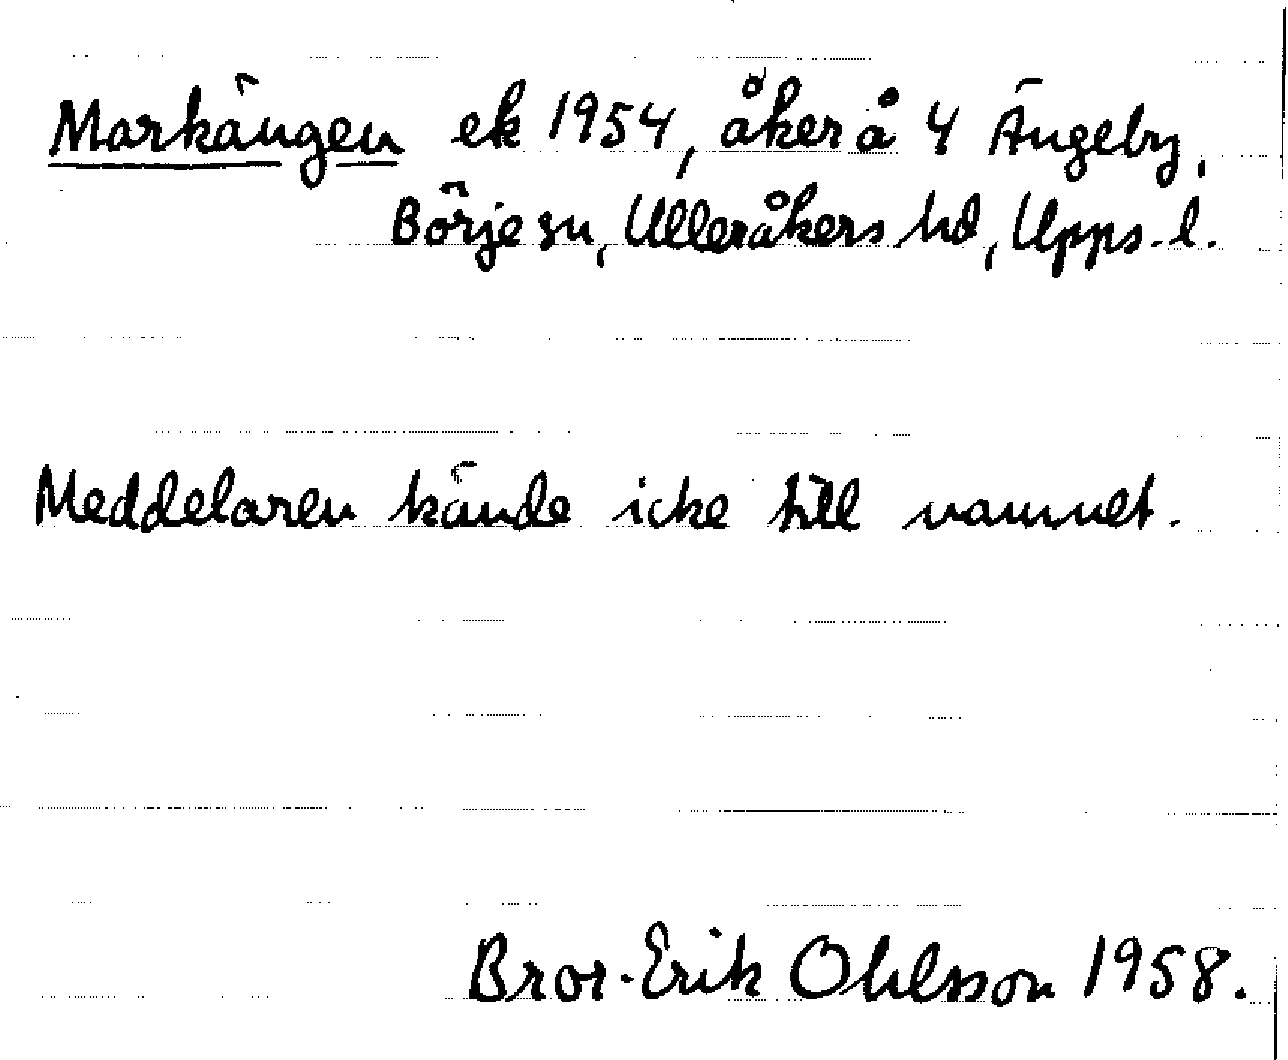 Markängen ek 1954, åker å 4 Ängeby,
Börje sn, Ulleråkers hd, Upps. l.
Meddelaren kände icke till namnet.
Bror-Erik Ohlsson 1958.